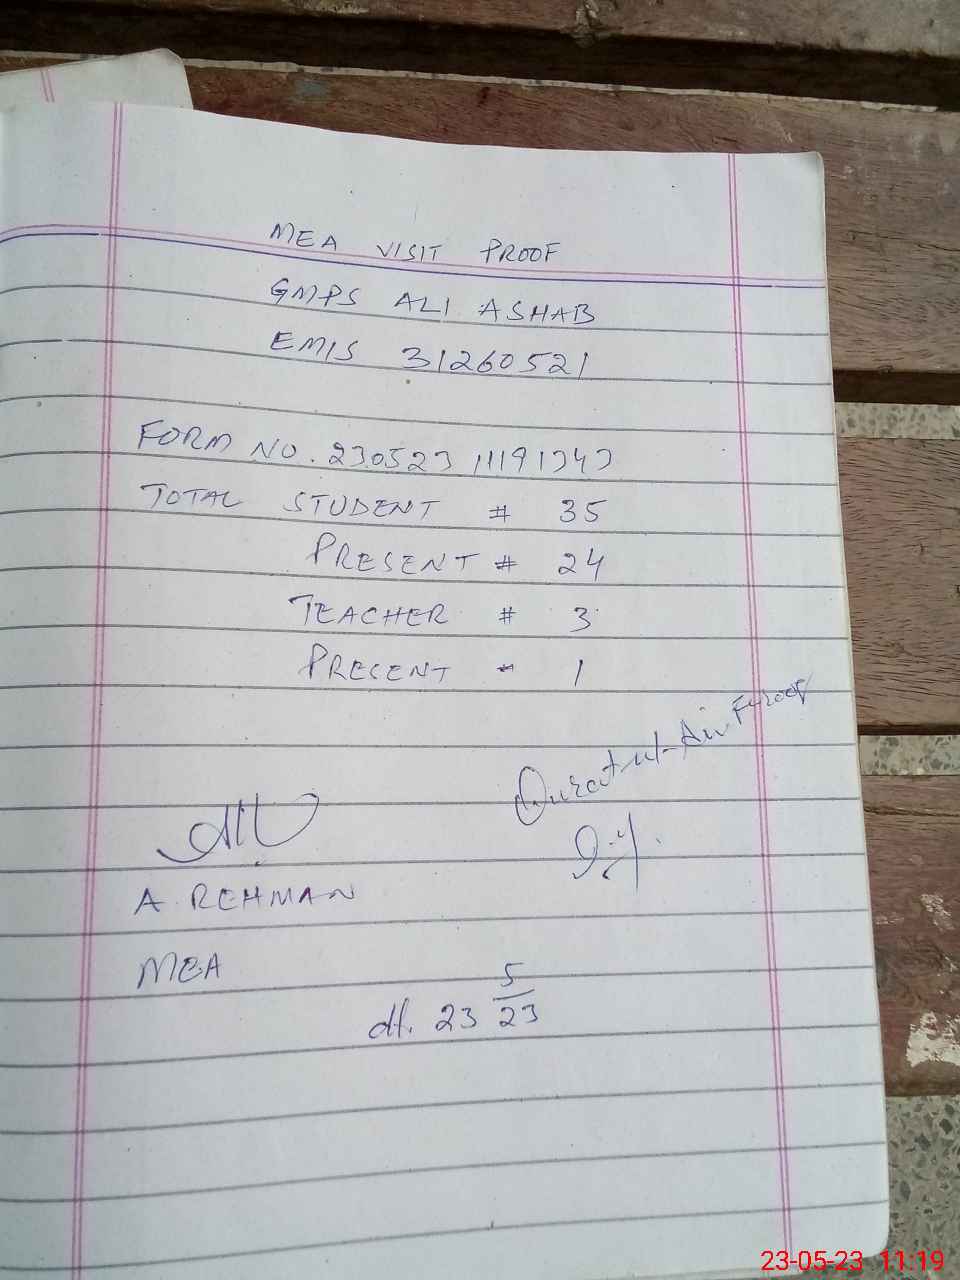 MEA VISIT PROOF
GMPS ALI ASHAB
EMIS 31260521
FORM NO. 230523 11191343
TOTAL STUDENT # 35
PRESENT # 24
TEACHER # 3
PRESENT # 1
Qurat-ul-Ain
A REHMAN
MEA
dt. 23 5/23
23-05-23 11:19